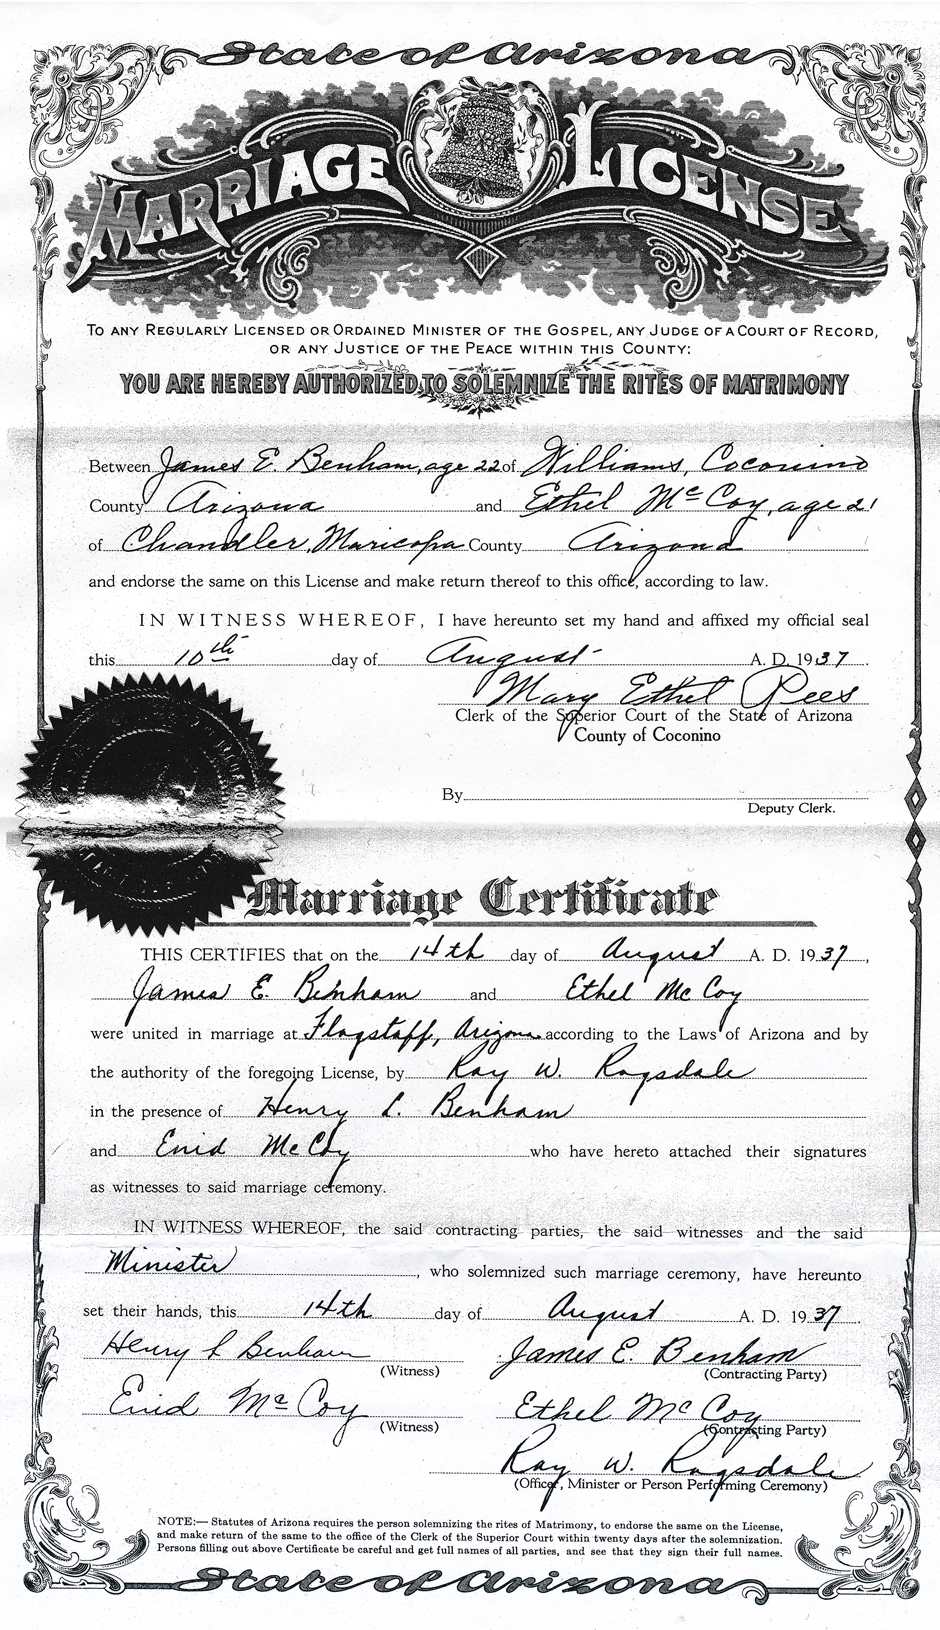 State of Arizona
MARRIAGE LICENSE
TO ANY REGULARLY LICENSED OR ORDAINED MINISTER OF THE GOSPEL, ANY JUDGE OF A COURT OF RECORD,
OR ANY JUSTICE OF THE PEACE WITHIN THIS COUNTY:
YOU ARE HEREBY AUTHORIZED TO SOLEMNIZE THE RITES OF MATRIMONY
Between James E. Benham, age 22 of Williams, Coconino
County Arizona and Ethel McCoy, age 21
of Chandler, Maricopa County Arizona
and endorse the same on this License and make return thereof to this office, according to law.
IN WITNESS WHEREOF, I have hereunto set my hand and affixed my official seal
this 10th day of August A. D. 1937.
Mary Ethel Rees
Clerk of the Superior Court of the State of Arizona
County of Coconino
By
Deputy Clerk.
Marriage Certificate
THIS CERTIFIES that on the 14th day of August A. D. 1937,
James E. Benham and Ethel McCoy
were united in marriage at Flagstaff, Arizona according to the Laws of Arizona and by
the authority of the foregoing License, by Ray W. Ragsdale
in the presence of Henry L. Benham
and Enid McCoy who have hereto attached their signatures
as witnesses to said marriage ceremony.
IN WITNESS WHEREOF, the said contracting parties, the said witnesses and the said
Minister, who solemnized such marriage ceremony, have hereunto
set their hands, this 14th day of August A. D. 1937.
Henry L Benham James E. Benham
(Witness) (Contracting Party)
Enid McCoy Ethel McCoy
(Witness) (Contracting Party)
Ray W. Ragsdale
(Officer, Minister or Person Performing Ceremony)
NOTE:— Statutes of Arizona requires the person solemnizing the rites of Matrimony, to endorse the same on the License,
and make return of the same to the office of the Clerk of the Superior Court within twenty days after the solemnization.
Persons filling out above Certificate be careful and get full names of all parties, and see that they sign their full names.
State of Arizona